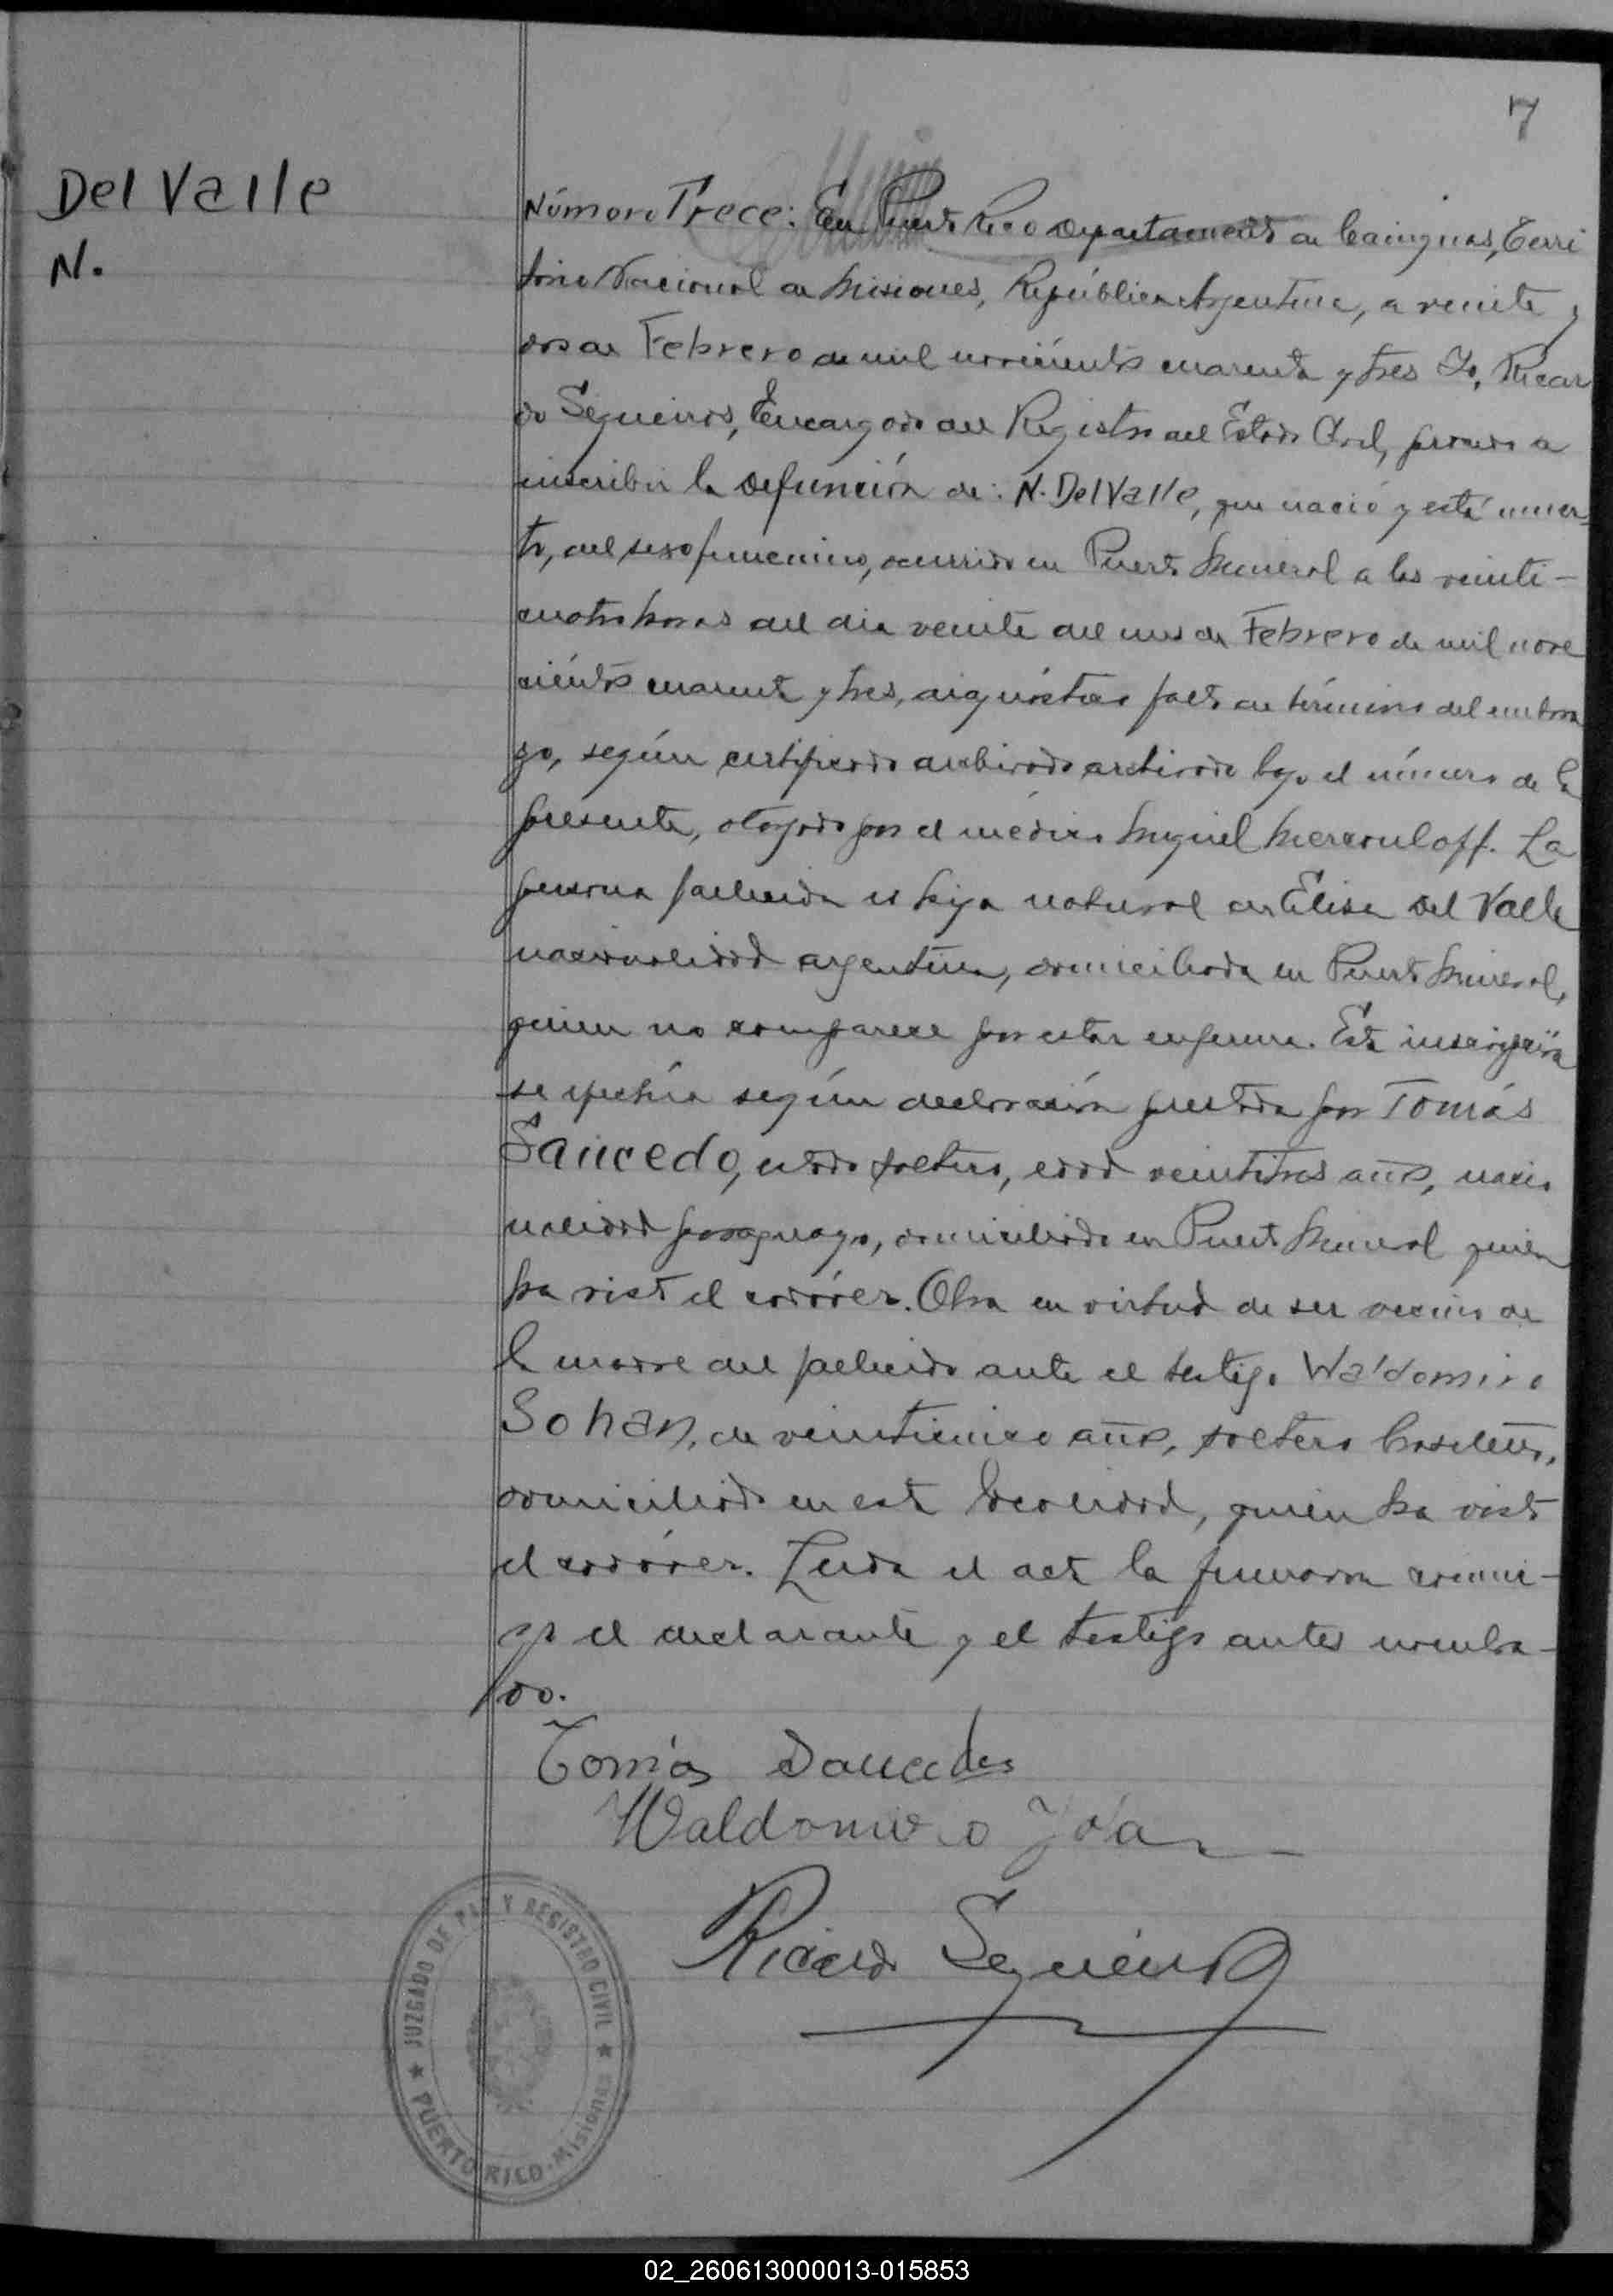 7
Del Valle
N.
Número Trece: En Puerto Rico Departamento de Cainguas, Terri
torio Nacional de Misiones, República Argentina, a veinte y
dos de Febrero de mil novecientos cuarenta y tres Yo, Ricar
do Sequeiros, Encargado del Registro del Estado Civil, procedo a
inscribir la Defunción de: N. Del Valle, que nació y está muer
to, del sexo femenino, ocurrido en Puerto Mineral a las veinti-
cuatro horas del dia veinte del mes de Febrero de mil nove
cientos cuarenta y tres, diagnóstico feto de término del embara
zo, según certificado archivado bajo el número de la
presente, otorgado por el médico Miguel Mercouloff. La
persona fallecida es hija natural de Elisa Del Valle
nacionalidad argentina, domiciliada en Puerto Mineral,
quien no comparece por estar enferma. Esta inscripción
se efectúa según declaración prestada por Tomás
Saucedo, estado soltero, edad veintitres años, nacio
nalidad paraguayo, domiciliado en Puerto Mineral quien
ha visto el cadáver. Obra en virtud de ser vecino de
la madre del fallecido ante el testigo Waldomiro
Johan, de veinticinco años, soltero brasileño,
domiciliado en esta localidad, quien ha visto
el cadáver. Leida el acta la firmaron conmi-
go el declarante y el testigo antes nombra-
do.
Tomás Saucedo
Waldomiro Jóan
Ricardo Sequeiros
JUZGADO DE PAZ Y REGISTRO CIVIL
PUERTO RICO - Misiones
02_260613000013-015853